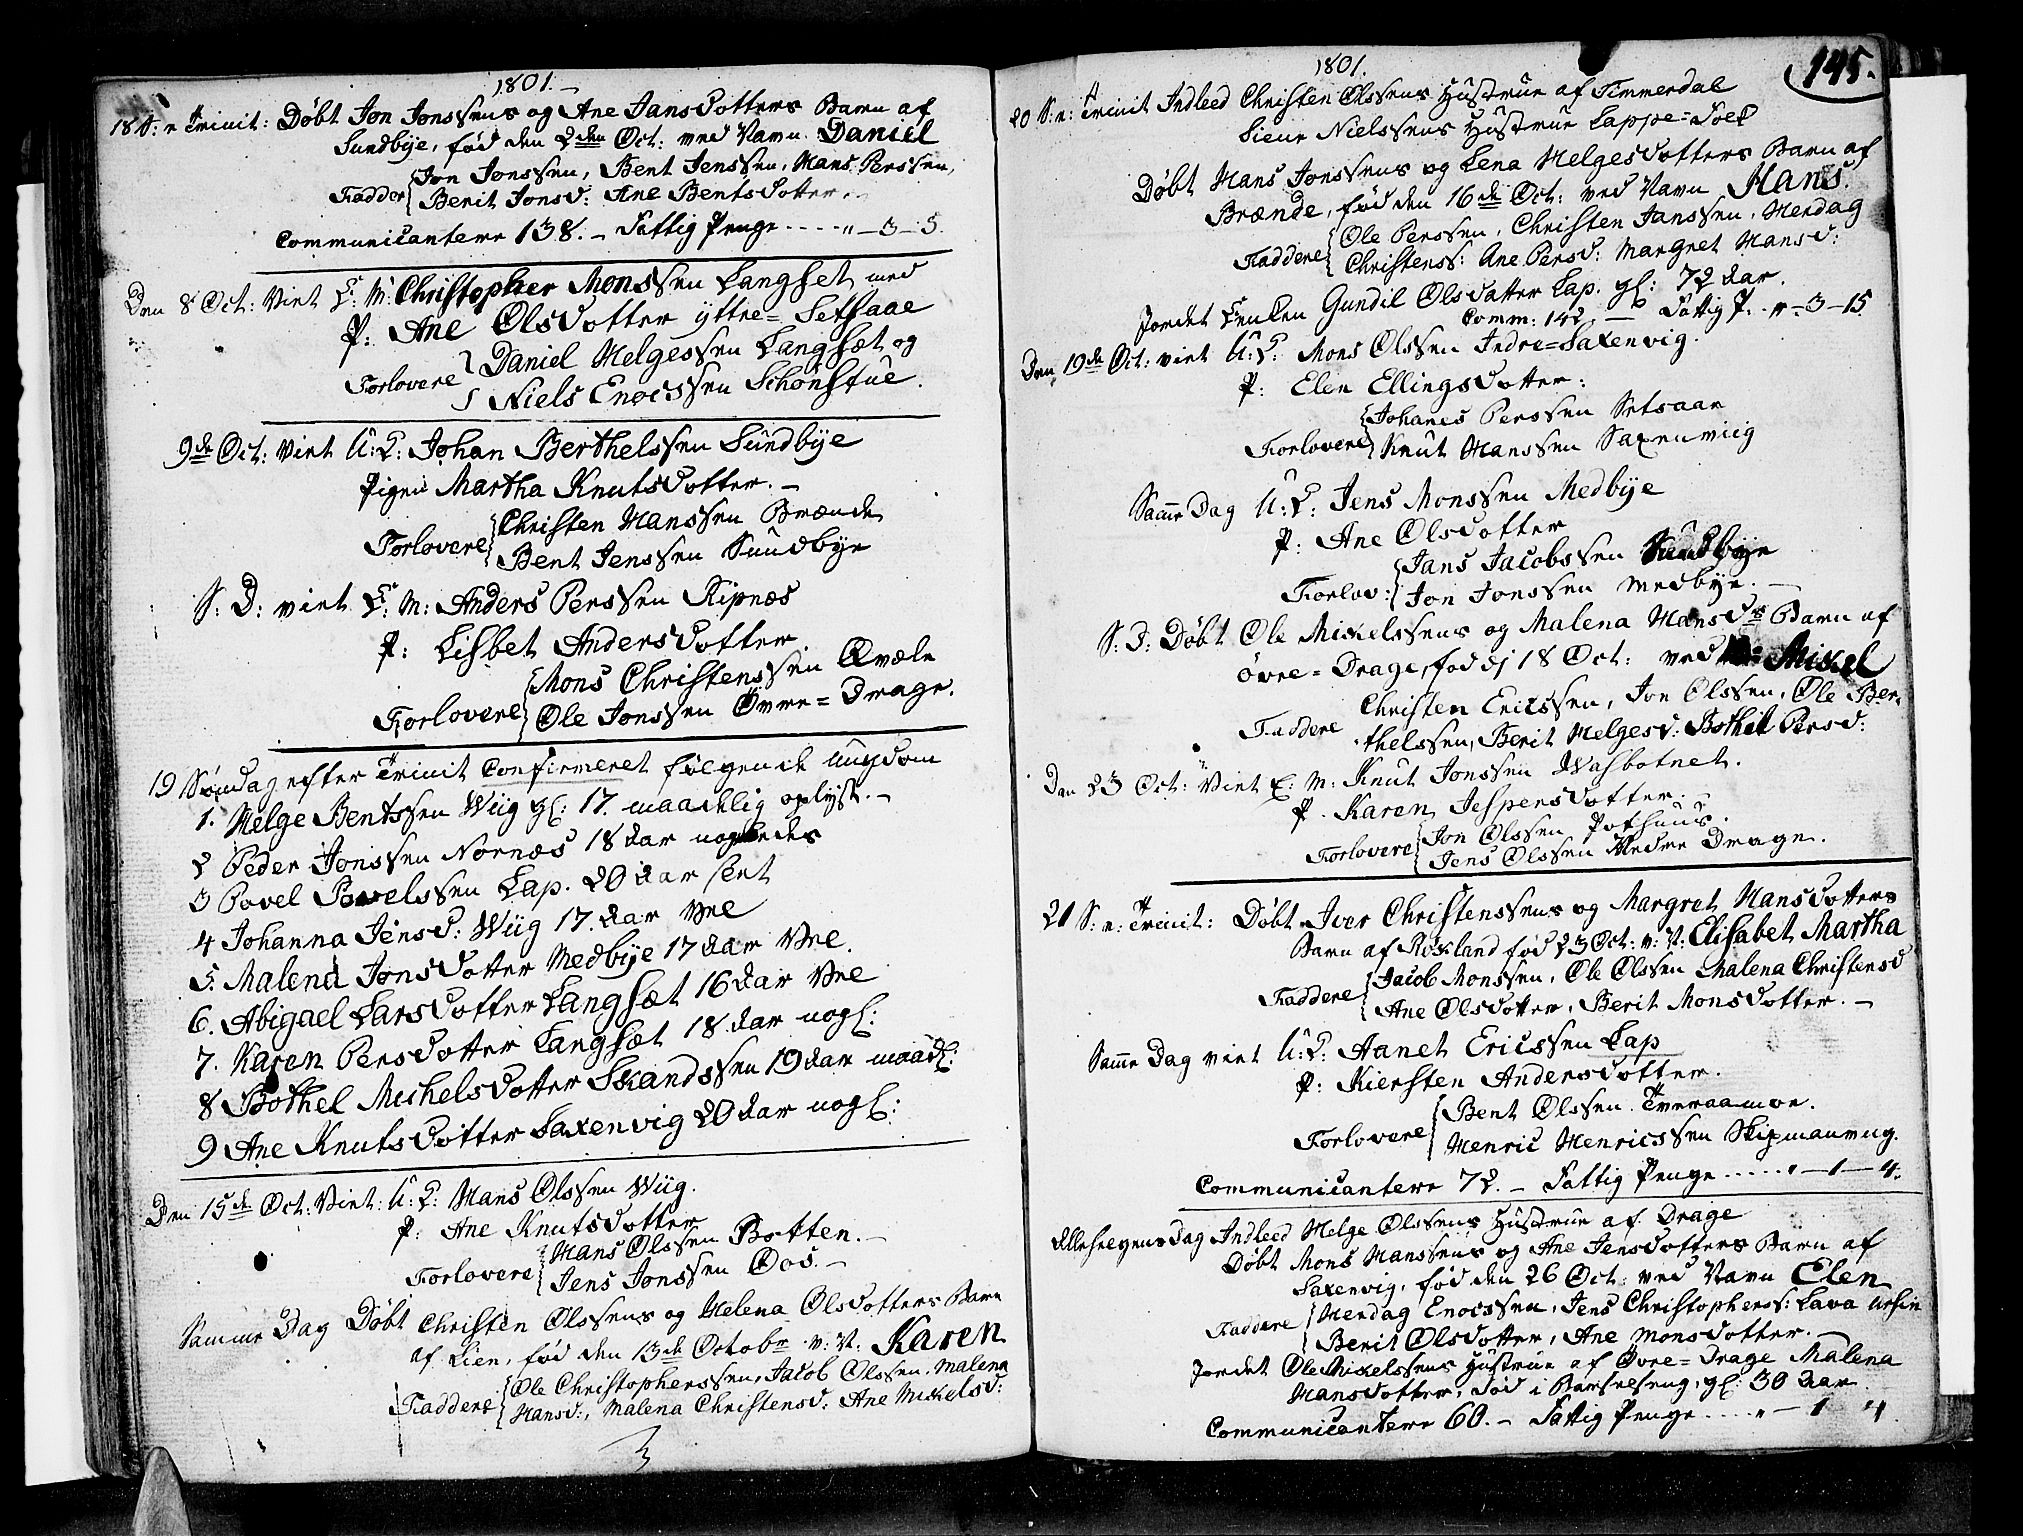 1801.
18 S: e Trinit: Døbt Jon Jonssens og Ane Jansdotters Barn af
Sundbye, fød den 2den Oct: ved Navn Daniel
Jon Jonssen, Bent Jenssen, Hans Perssen,
Fadder Berit Jonsd: Ane Bentsdotter.
Communicantere 138. – Fattig Penge - - - - " – 3 – 5.
Den 8 Oct: Viet E: M: Christopher Monssen Langset med
P: Ane Olsdotter yttre = Setsaae
Daniel Helgessen Langsæt og
Forlovere
Niels Enocssen Schonstue.
9de Oct: Viet U: K: Johan Berthelssen Sundbye
Pigen Martha Knutsdotter. –
Christen Hanssen Brænde
Forlovere
Bent Jenssen Sundbye
S: D: viet E: M: Anders Perssen Ripnæs
P: Lisbet Andersdotter
Mons Christenssen Qvæle
Forlovere
Ole Jonssen Øvre = Drage.
19 Søndag efter Trinit Confirmeret følgende ungdom
1. Helge Bentssen Wiig gl: 17. maadelig oplyst. –
2 Peder Jonssen Nornæs 18 Aar nogledes
3 Povel Povelssen Lap. 20 Aar slet
4 Johanna Jensd: Wiig 17. Aar Vel
5. Malena Jonsdotter Medbye 17 Aar Vel.
6. Abigael Larsdotter Langsæt 16 Aar Vel
7. Karen Persdotter Langsæt 18 Aar nogl:
8 Bothel Michelsdotter Skandssen 19 Aar maadl:
9 Ane Knutsdotter Saxenvig 20 Aar nogl:
Den 15de Oct: Viet: U: K: Hans Olssen Wiig.
P: Ane Knutsdotter
Hans Olssen Botten. –
Forlovere
Jens Jonssen Oos. –
Samme Dag Døbt Christen Olssens og Helena Olsdotters Barn
af Lien, fød den 13de Octobr v: N: Karen
Ole Christopherssen, Jacob Olssen, Malena
Faddere
Hansd:, Malena Christensd: Ane Mikelsd:
1801.
145.
20 S: e: Trinit Indleed Christen Olssens Hustrue af Timmerdal
Siver Nielssens Hustrue Lappe =
Døbt Hans Jonssens og Lena Helgesdotters Barn af
Brænde, fød den 16de Oct: ved Navn Hans
Ole Perssen, Christen Janssen, Hendag
Faddere
Christenss: Ane Persd: Margret Hansd:
Jordet Enken Gundil Olsdatter Lap. gl: 72 Aar.
Comm: 142 – Fattig P: " – 3 – 15
Den 19de Oct: viet U: K: Mons Olssen Indre = Saxenvig.
P: Elen Ellingsdotter:
Johanes Perssen Setsaae
Forlovere
Knut Hanssen Saxenviig
Samme Dag U: K: Jens Monssen Medbye
P: Ane Olsdotter
Jans Jacobssen Sundbye
Forlov:
Jon Jonssen Medbye. –
S: D: Døbt Ole Mikelssens og Malena Hansdrs Barn af
øvre = Drage, fød dj 18 Oct: ved N: Mikel
Christen Ericssen, Jon Olssen, Ole Ber-
Faddere thelssen, Berit Helgesd: Bothil Persd:
Den 23 Oct: Viet E: M: Knut Jonssen Wasbotnet.
P. Karen Jespersdotter. –
Jon Olssen Pothuus.
Forlovere
Jens Olssen Nedre Drage.
21 S: e: Trinit: Døbt Iver Christenssens og Margret Hansdotters
Barn af Rokland fød 23 Oct: v: N: Elisabet Martha
Jacob Monssen, Ole Olssen Malena Christensd
Faddere
Ane Olsdotter, Berit Monsdotter. –
Samme Dag viet U: K: Aanet Ericssen Lap
P: Kiersten Andersdotter.
Bent Olssen Tveraamoe.
Forlovere
Henric Henricssen Skipmanvug.
Communicantere 72. – Fattig Penge - - - - - " – 1 – 4.
Allehelgens Dag Indleed Helge Olssens Hustrue af Drage
Døbt Mons Hanssens og Ane Jensdotters Barn af
Saxenvig, fød den 26 Oct: ved Navn Elen
Hendag Enocssen, Jens Christopherss: Lava
Faddere
Berit Olsdotter, Ane Monsdotter. –
Jordet Ole Mikelssens Hustrue af Øvre = Drage Malena
Hansdotter, død i Barselseng, gl: 30 Aar
Communicantere 60. – Fattig Penge - - - - " – 1 4